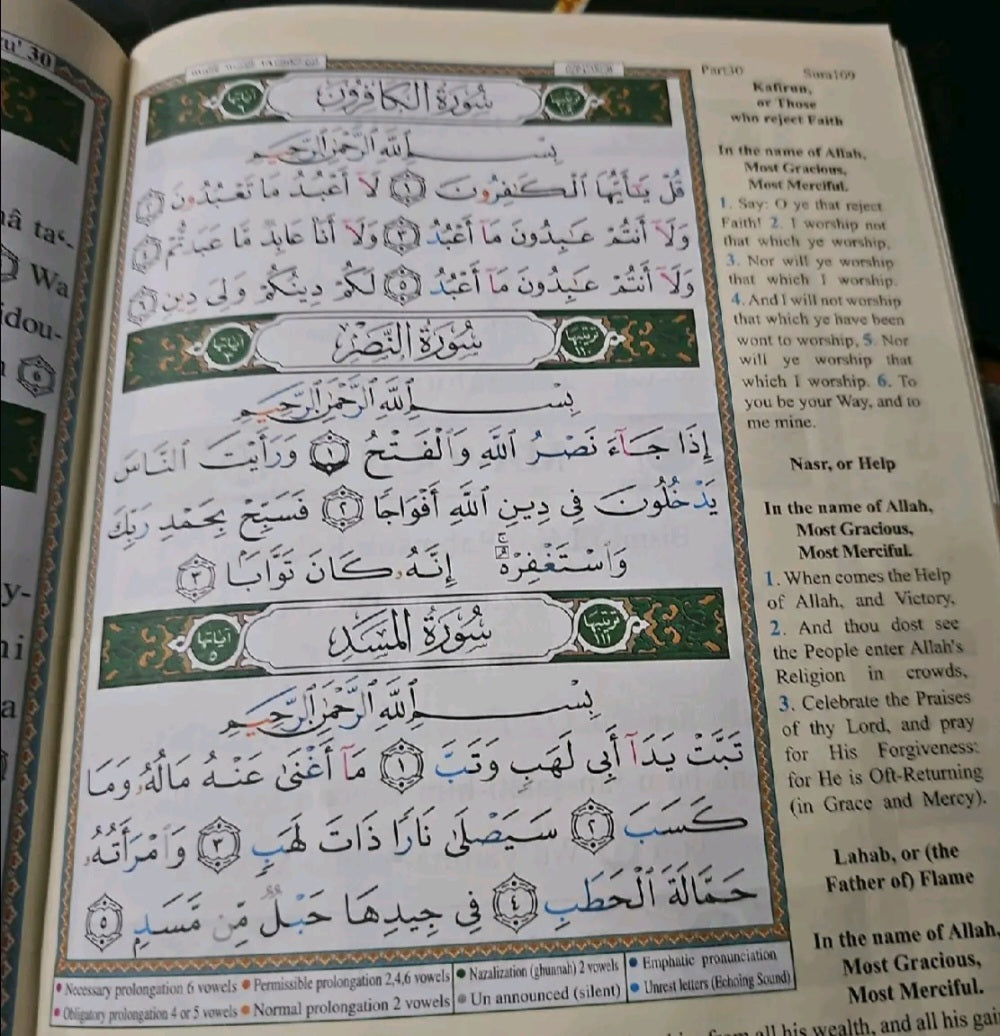 سُورَةُ الكَافِرُونَ
بِسْمِ اللَّهِ الرَّحْمَٰنِ الرَّحِيمِ
قُلْ يَٰٓأَيُّهَا الْكَٰفِرُونَ ١ لَآ أَعْبُدُ مَا تَعْبُدُونَ ٢
وَلَآ أَنتُمْ عَٰبِدُونَ مَآ أَعْبُدُ ٣ وَلَآ أَنَا۠ عَابِدٌ مَّا عَبَدتُّمْ ٤
وَلَآ أَنتُمْ عَٰبِدُونَ مَآ أَعْبُدُ ٥ لَكُمْ دِينُكُمْ وَلِيَ دِينِ ٦
ترتيبها ١١٠ سُورَةُ النَّصْرِ آياتها ٣
بِسْمِ اللَّهِ الرَّحْمَٰنِ الرَّحِيمِ
إِذَا جَآءَ نَصْرُ اللَّهِ وَالْفَتْحُ ١ وَرَأَيْتَ النَّاسَ
يَدْخُلُونَ فِي دِينِ اللَّهِ أَفْوَاجًا ٢ فَسَبِّحْ بِحَمْدِ رَبِّكَ
وَاسْتَغْفِرْهُ ۚ إِنَّهُۥ كَانَ تَوَّابًۢا ٣
ترتيبها ١١١ سُورَةُ المَسَدِ آياتها ٥
بِسْمِ اللَّهِ الرَّحْمَٰنِ الرَّحِيمِ
تَبَّتْ يَدَآ أَبِي لَهَبٍ وَتَبَّ ١ مَآ أَغْنَىٰ عَنْهُ مَالُهُۥ وَمَا
كَسَبَ ٢ سَيَصْلَىٰ نَارًا ذَاتَ لَهَبٍ ٣ وَامْرَأَتُهُۥ
حَمَّالَةَ الْحَطَبِ ٤ فِي جِيدِهَا حَبْلٌ مِّن مَّسَدٍۭ ٥
Part30 Sura109
Kafirun,
or Those
who reject Faith
In the name of Allah,
Most Gracious,
Most Merciful.
1. Say: O ye that reject
Faith! 2. I worship not
that which ye worship,
3. Nor will ye worship
that which I worship.
4. And I will not worship
that which ye have been
wont to worship, 5. Nor
will ye worship that
which I worship. 6. To
you be your Way, and to
me mine.
Nasr, or Help
In the name of Allah,
Most Gracious,
Most Merciful.
1. When comes the Help
of Allah, and Victory,
2. And thou dost see
the People enter Allah's
Religion in crowds,
3. Celebrate the Praises
of thy Lord, and pray
for His Forgiveness:
for He is Oft-Returning
(in Grace and Mercy).
Lahab, or (the
Father of) Flame
In the name of Allah,
Most Gracious,
Most Merciful.
all his wealth, and all his
• Necessary prolongation 6 vowels • Permissible prolongation 2,4,6 vowels • Nazalization (ghunnah) 2 vowels • Emphatic pronunciation
• Obligatory prolongation 4 or 5 vowels • Normal prolongation 2 vowels • Un announced (silent) • Unrest letters (Echoing Sound)
30
ta‘-
Wa